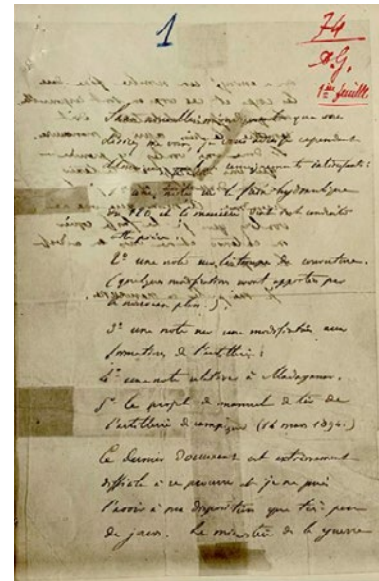 1
74
1re feuille
Sans nouvelles m'indiquant que vous
désirez me voir, je vous adresse cependant
Monsieur quelques renseignements intéressants :
1° une note sur le frein hydraulique
du 120 et la manière dont s'est conduite
cette pièce.
2° une note sur les troupes de couverture.
(quelques modifications seront apportées par
le nouveau plan.)
3° une note sur une modification aux
formations de l'artillerie :
4° une note relative à Madagascar.
5° le projet de manuel de tir de
l'artillerie de campagne (14 mars 1894.)
Ce dernier document est extrêmement
difficile à se procurer et je ne puis
l'avoir à ma disposition que très peu
de jours. Le ministère de la guerre